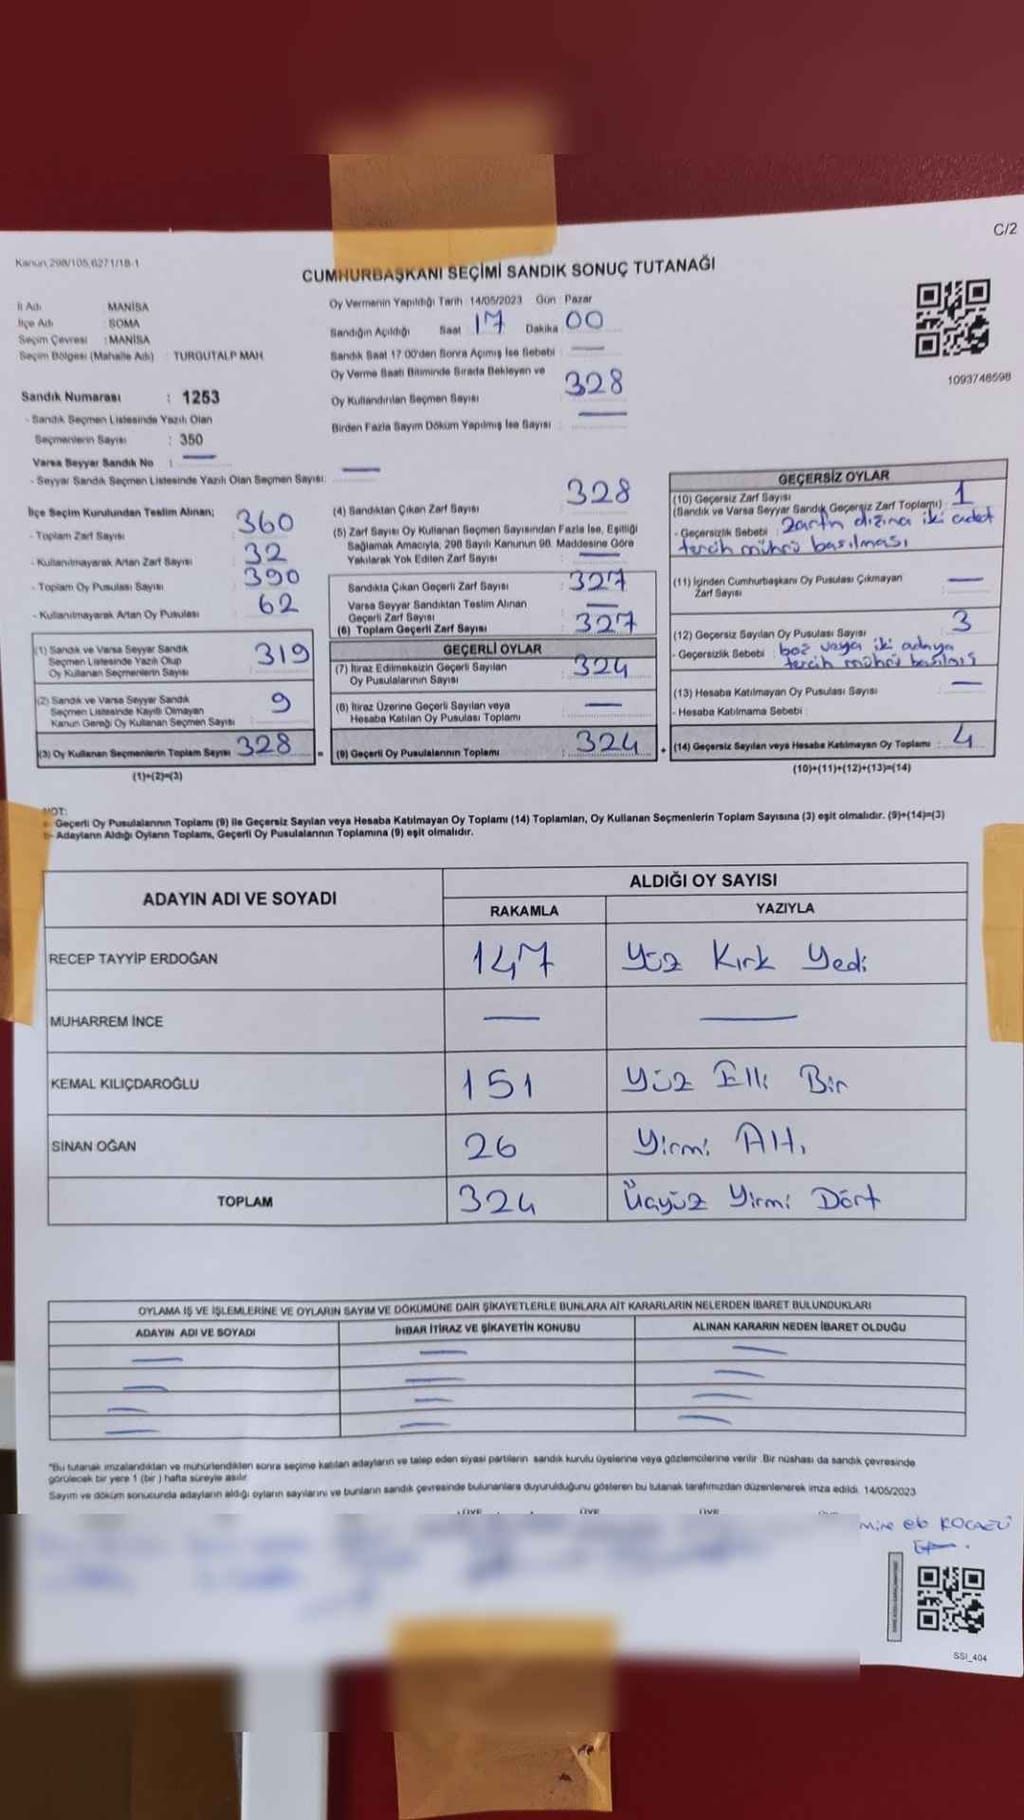 C/2
Kanun 298/105,6271/18-1
CUMHURBAŞKANI SEÇİMİ SANDIK SONUÇ TUTANAĞI
İl Adı : MANİSA
İlçe Adı : SOMA
Seçim Çevresi : MANİSA
Seçim Bölgesi (Mahalle Adı) : TURGUTALP MAH
Sandık Numarası : 1253
- Sandık Seçmen Listesinde Yazılı Olan
Seçmenlerin Sayısı : 350
Varsa Seyyar Sandık No : —
- Seyyar Sandık Seçmen Listesinde Yazılı Olan Seçmen Sayısı: —
Oy Vermenin Yapıldığı Tarih : 14/05/2023 Gün : Pazar
Sandığın Açıldığı Saat 17 Dakika 00
Sandık Saat 17:00'den Sonra Açımış İse Sebebi : —
Oy Verme Saati Bitiminde Sırada Bekleyen ve
Oy Kullandırılan Seçmen Sayısı : 328
Birden Fazla Sayım Döküm Yapılmış İse Sayısı : —
1093748598
İlçe Seçim Kurulundan Teslim Alınan;
- Toplam Zarf Sayısı : 360
- Kullanılmayarak Artan Zarf Sayısı : 32
- Toplam Oy Pusulası Sayısı : 390
- Kullanılmayarak Artan Oy Pusulası : 62
(1) Sandık ve Varsa Seyyar Sandık
Seçmen Listesinde Yazılı Olup
Oy Kullanan Seçmenlerin Sayısı : 319
(2) Sandık ve Varsa Seyyar Sandık
Seçmen Listesinde Kayıtlı Olmayan
Kanun Gereği Oy Kullanan Seçmen Sayısı : 9
(3) Oy Kullanan Seçmenlerin Toplam Sayısı : 328
(1)+(2)=(3)
(4) Sandıktan Çıkan Zarf Sayısı : 328
(5) Zarf Sayısı Oy Kullanan Seçmen Sayısından Fazla İse, Eşitliği
Sağlamak Amacıyla, 298 Sayılı Kanunun 98. Maddesine Göre
Yakılarak Yok Edilen Zarf Sayısı : —
Sandıkta Çıkan Geçerli Zarf Sayısı : 327
Varsa Seyyar Sandıktan Teslim Alınan
Geçerli Zarf Sayısı : —
(6) Toplam Geçerli Zarf Sayısı : 327
GEÇERLİ OYLAR
(7) İtiraz Edilmeksizin Geçerli Sayılan
Oy Pusulalarının Sayısı : 324
(8) İtiraz Üzerine Geçerli Sayılan veya
Hesaba Katılan Oy Pusulası Toplamı : —
= (9) Geçerli Oy Pusulalarının Toplamı : 324
GEÇERSİZ OYLAR
(10) Geçersiz Zarf Sayısı
(Sandık ve Varsa Seyyar Sandık Geçersiz Zarf Toplamı) : 1
- Geçersizlik Sebebi : Zarfın dışına iki adet
tercih mührü basılması
(11) İçinden Cumhurbaşkanı Oy Pusulası Çıkmayan
Zarf Sayısı : —
(12) Geçersiz Sayılan Oy Pusulası Sayısı : 3
- Geçersizlik Sebebi : boş veya iki adaya
tercih mührü basılmış
(13) Hesaba Katılmayan Oy Pusulası Sayısı : —
- Hesaba Katılmama Sebebi :
+ (14) Geçersiz Sayılan veya Hesaba Katılmayan Oy Toplamı : 4
(10)+(11)+(12)+(13)=(14)
NOT:
a- Geçerli Oy Pusulalarının Toplamı (9) ile Geçersiz Sayılan veya Hesaba Katılmayan Oy Toplamı (14) Toplamları, Oy Kullanan Seçmenlerin Toplam Sayısına (3) eşit olmalıdır. (9)+(14)=(3)
b- Adayların Aldığı Oyların Toplamı, Geçerli Oy Pusulalarının Toplamına (9) eşit olmalıdır.
ADAYIN ADI VE SOYADI ALDIĞI OY SAYISI
RAKAMLA YAZIYLA
RECEP TAYYİP ERDOĞAN 147 Yüz Kırk Yedi
MUHARREM İNCE — —
KEMAL KILIÇDAROĞLU 151 Yüz Elli Bir
SİNAN OĞAN 26 Yirmi Altı
TOPLAM 324 Üçyüz Yirmi Dört
OYLAMA İŞ VE İŞLEMLERİNE VE OYLARIN SAYIM VE DÖKÜMÜNE DAİR ŞİKAYETLERLE BUNLARA AİT KARARLARIN NELERDEN İBARET BULUNDUKLARI
ADAYIN ADI VE SOYADI İHBAR İTİRAZ VE ŞİKAYETİN KONUSU ALINAN KARARIN NEDEN İBARET OLDUĞU
*Bu tutanak imzalandıktan ve mühürlendikten sonra seçime katılan adayların ve talep eden siyasi partilerin sandık kurulu üyelerine veya gözlemcilerine verilir. Bir nüshası da sandık çevresinde
görülecek bir yere 1 (bir) hafta süreyle asılır.
Sayım ve döküm sonucunda adayların aldığı oyların sayılarını ve bunların sandık çevresinde bulunanlara duyurulduğunu gösteren bu tutanak tarafımızdan düzenlenerek imza edildi. 14/05/2023
ÜYE ÜYE ÜYE
SSI_404